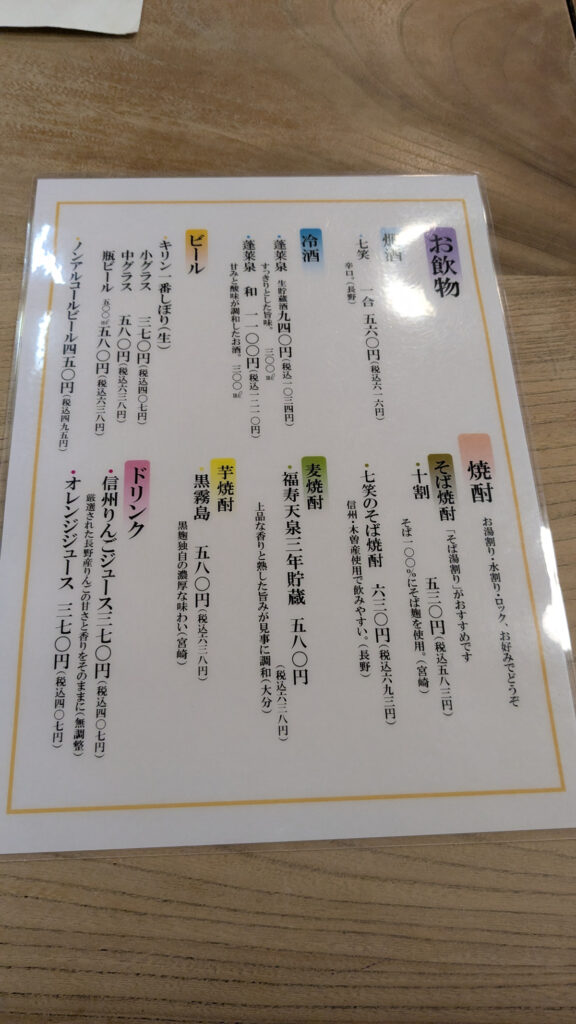 お飲物
燗酒
七笑 一合 五六〇円(税込六一六円)
辛口。(長野)
冷酒
蓬莱泉 生貯蔵酒九四〇円(税込一〇三四円)
すっきりとした旨味。 三〇〇㎖
蓬莱泉 和 一一〇〇円(税込一二一〇円)
甘みと酸味が調和したお酒。三〇〇㎖
ビール
キリン一番しぼり(生)
小グラス 三七〇円(税込四〇七円)
中グラス 五八〇円(税込六三八円)
瓶ビール 五〇〇㎖五八〇円(税込六三八円)
ノンアルコールビール四五〇円(税込四九五円)
焼酎
お湯割り・水割り・ロック、お好みでどうぞ
そば焼酎 「そば湯割り」がおすすめです
十割 五三〇円(税込五八三円)
そば一〇〇%にそば麹を使用。(宮崎)
七笑のそば焼酎 六三〇円(税込六九三円)
信州・木曽産使用で飲みやすい。(長野)
麦焼酎
福寿天泉三年貯蔵 五八〇円
(税込六三八円)
上品な香りと熟した旨みが見事に調和(大分)
芋焼酎
黒霧島 五八〇円(税込六三八円)
黒麹独自の濃厚な味わい(宮崎)
ドリンク
信州りんごジュース三七〇円(税込四〇七円)
厳選された長野産りんごの甘さと香りをそのままに(無調整)
オレンジジュース 三七〇円(税込四〇七円)